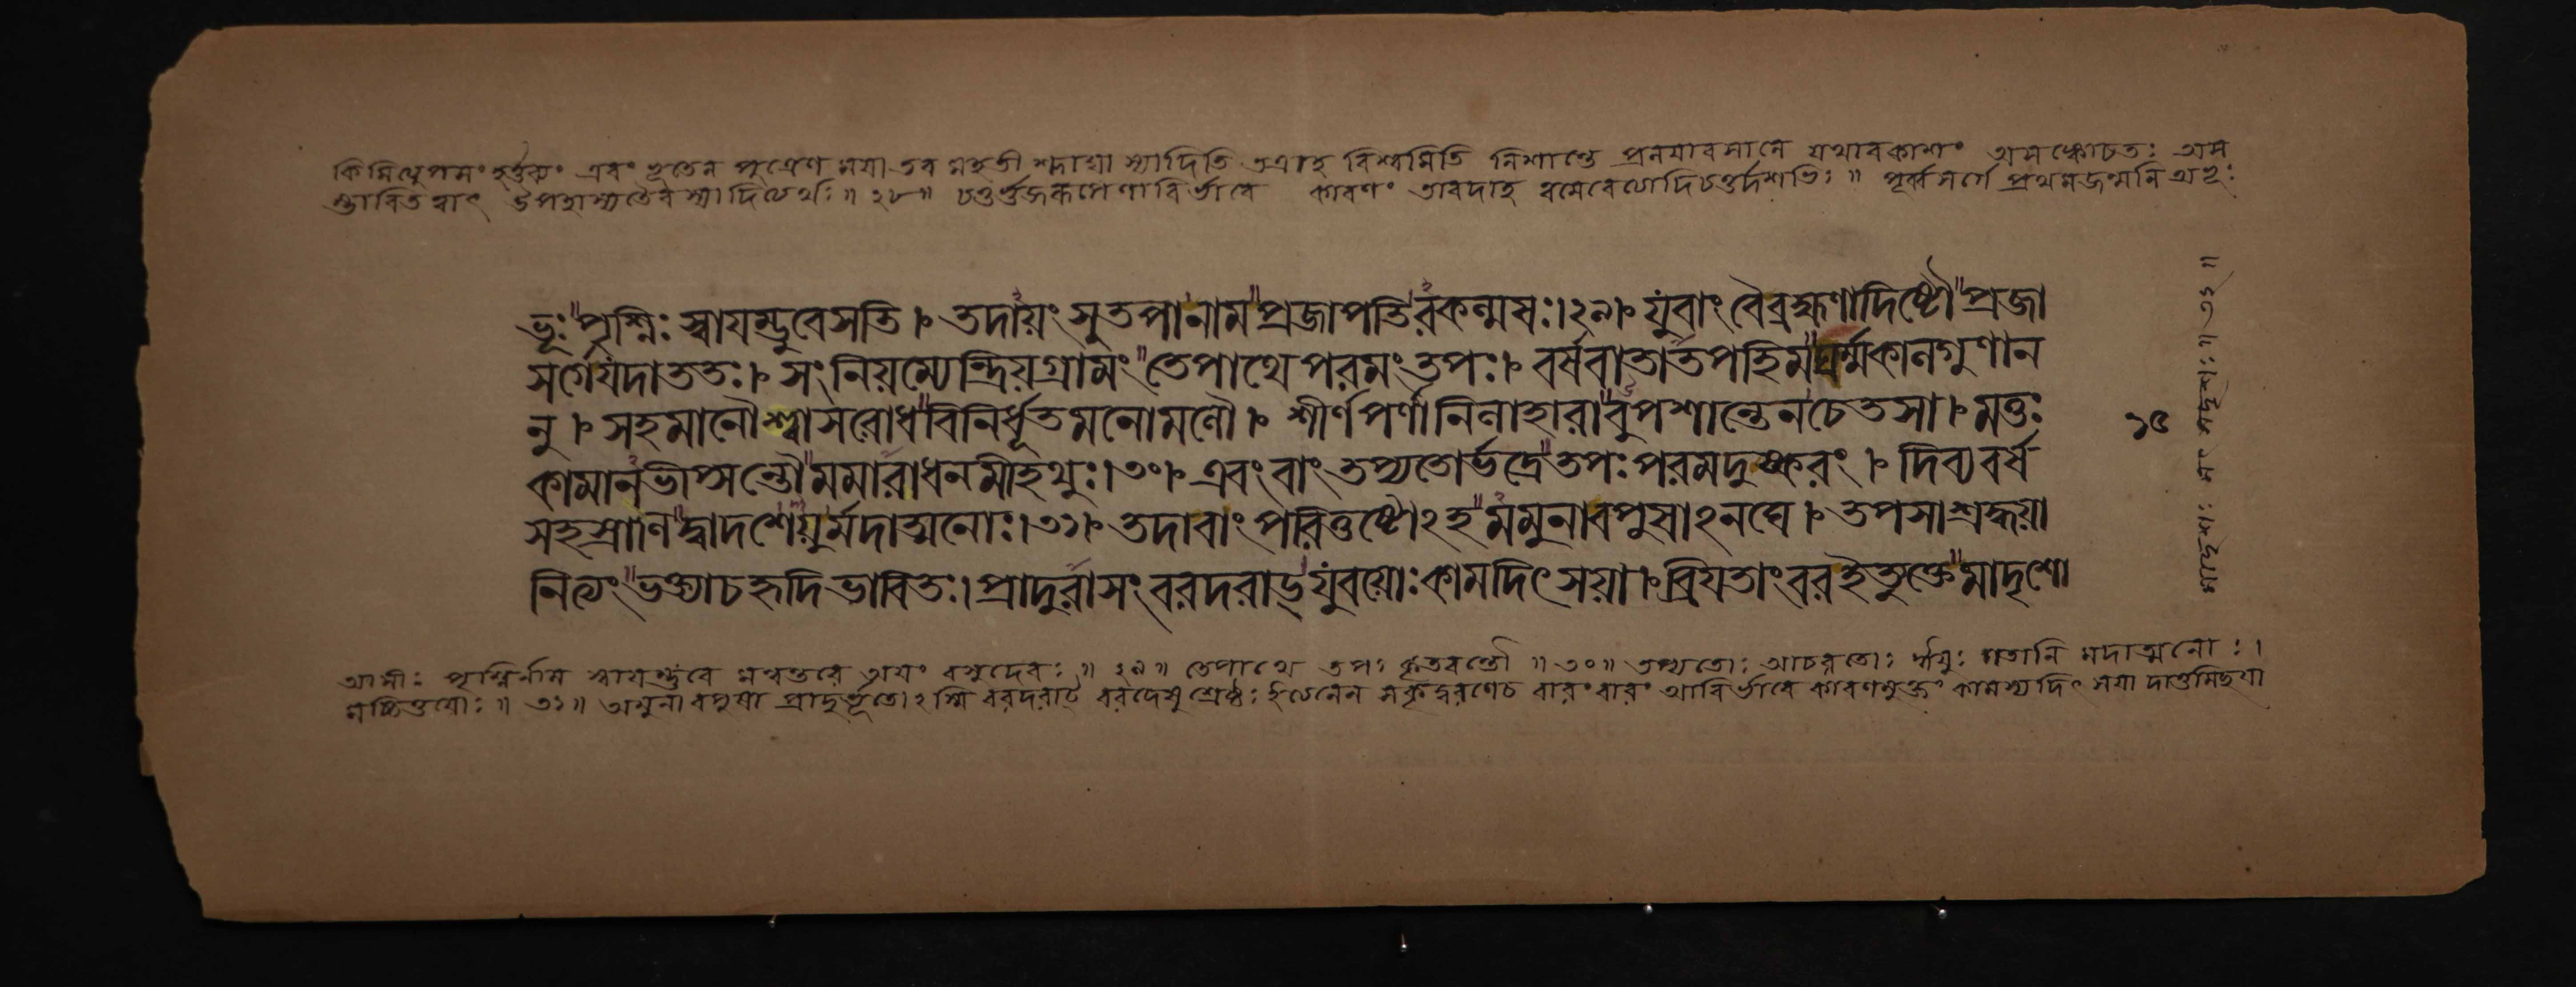 কিন্নিত্যুপসং হর্ত্তব্যং এবং ভূতেন পুত্রেণ ময়া তব মহতী শ্লাঘা স্যাদিতি তত্রাহ বিশ্বমিতি নিশান্তে প্রলয়াবসানে যথাবকাশং অসঙ্কোচতঃ অস
ম্ভাবিতত্বাৎ উপহাস্যতৈব স্যাদিত্যর্থঃ॥ ২৮॥ চতুর্ভুজরূপেণাবির্ভাবে কারণং তাবদাহ ত্বমেবেত্যাদিচতুর্দশভিঃ॥ পূর্ব্বসর্গে প্রথমজন্মনি অভূঃ
ভূঃ পৃশ্নিঃ স্বায়ম্ভুবেসতি । তদায়ং সুতপানাম প্রজাপতিরকল্মষঃ।২৯। যুবাং বৈব্রহ্মণাদিষ্টৌ প্রজা
সর্গেযদাততঃ। সংনিয়ম্যেন্দ্রিয়গ্রামং তেপাথে পরমংতপঃ। বর্ষবাতাতপহিমঘর্ম্মকালগুণান
নু । সহমানৌশ্বাসরোধবিনির্ধূতমনোমলৌ। শীর্ণপর্ণানিলাহারাবুপশান্তেনচেতসা। মত্তঃ
কামানভীপ্সন্তৌমমারাধনমীহথুঃ।৩০। এবং বাং তপ্যতোর্ভদ্রেতপঃ পরমদুষ্করং । দিব্যবর্ষ
সহস্রাণিদ্বাদশেয়ুর্মদাত্মনোঃ।৩১। তদাবাং পরিতুষ্টোঽহমমুনাবপুষাঽনঘে । তপসাশ্রদ্ধয়া
নিত্যং ভক্ত্যাচহৃদিভাবিতঃ।প্রাদুরাসং বরদরাড্যুবয়োঃকামদিৎসয়া। ব্রিয়তাংবরইত্যুক্তেমাদৃশো
১৫
আসীঃ পৃশ্নির্নাম স্বায়ম্ভুবে মন্বন্তরে অয়ং বসুদেবঃ॥ ২৯॥ তেপাথে তপঃ কৃতবন্তৌ॥ ৩০॥ তপ্যতোঃ আচরতোঃ ঈয়ুঃ গতানি মদাত্মনোঃ।
মচ্চিত্তয়োঃ॥ ৩১॥ অমুনা বপুষা প্রাদুর্ভূতোঽস্মি বরদরাট্ বরদেষু শ্রেষ্ঠঃ ইত্যনেন সকৃদ্বরণেচ বারংবারং আবির্ভাবে কারণমুক্তং কামস্য দিৎসয়া দাতুমিচ্ছয়া